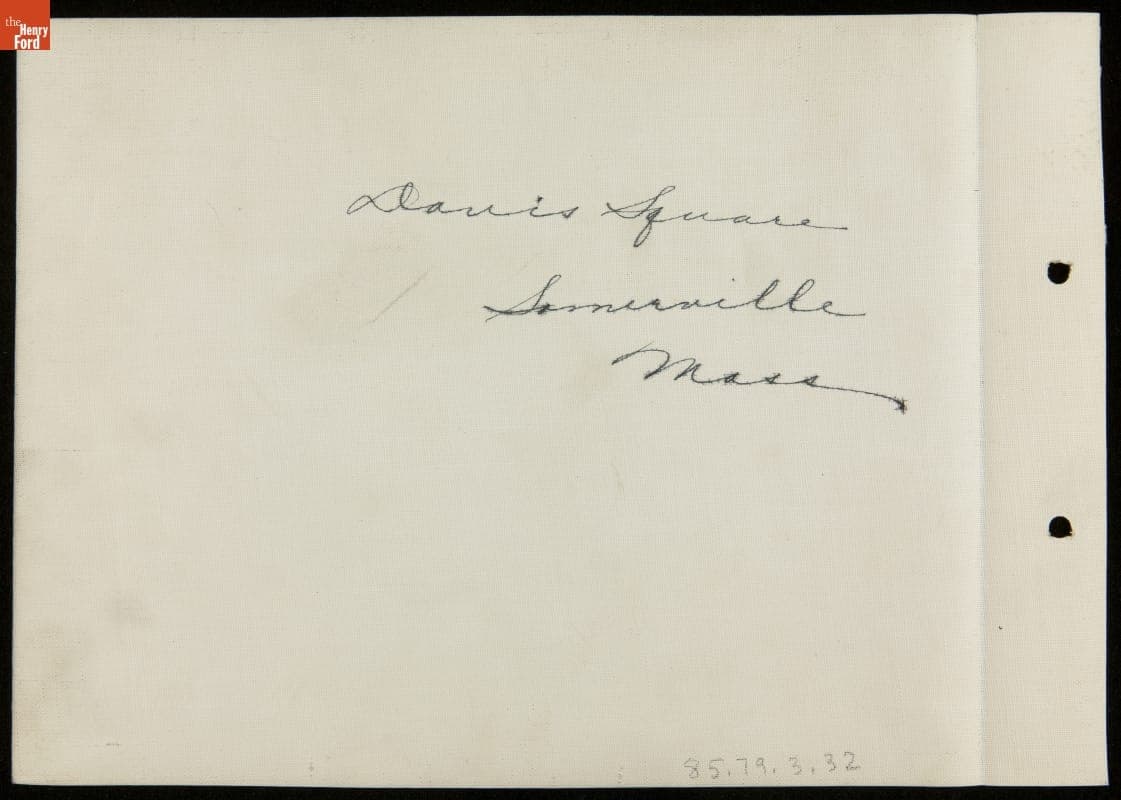 the
Henry
Ford
Davis Square
Somerville
Mass
85.79.3.32